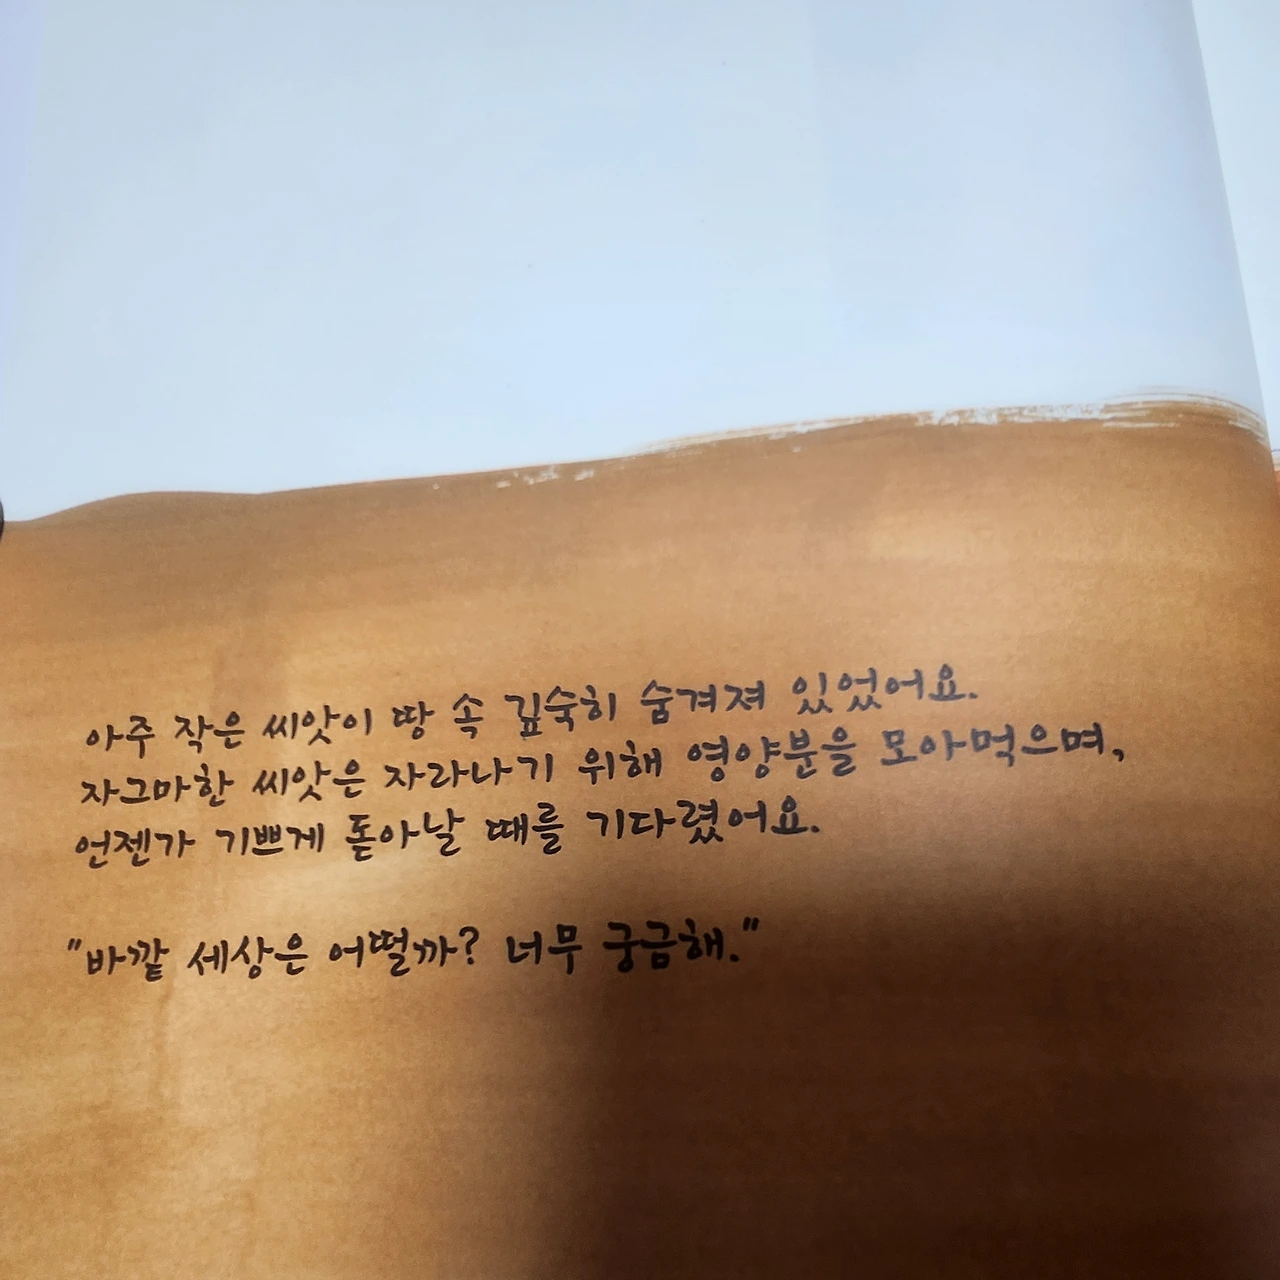 아주 작은 씨앗이 땅 속 깊숙히 숨겨져 있었어요.
자그마한 씨앗은 자라나기 위해 영양분을 모아먹으며,
언젠가 기쁘게 돋아날 때를 기다렸어요.
"바깥 세상은 어떨까? 너무 궁금해."